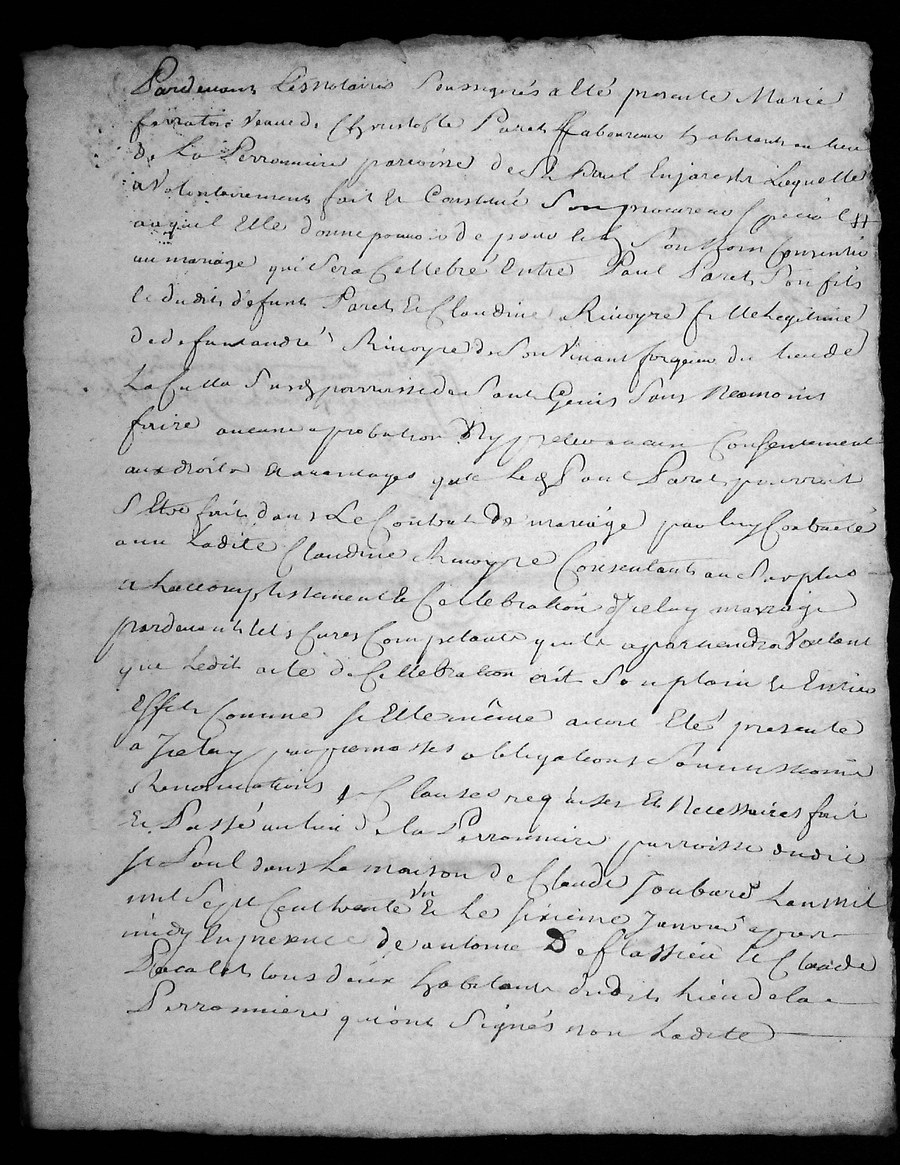 Pardevant Lesnotaires Soussignés a Eté presente Marie
veuve de Christofle Paret Laboureur habitante au lieu
de La Perronniere paroisse de St Paul Enjarest Laquelle
a Volontairement fait et Constitué Son procureur special
auquel Elle donne pouvoir de pour et En Son Nom Consentir
au mariage qui Sera Cellebré Entre Paul Paret Son fils
et dudit deffunt Paret Et Claudine Rivoyre fille Legitime
de defunt andré Rivoyre de Son Vivant forgeur du lieu de
La Sur parroisse de Saint Genis Sans Neamoins
faire aucune aprobation Ny preter aucun Consentement
aux droits et avantages que Led Paul Paret pourroit
S'Etre faits dans Le Contrat de mariage par luy Contracté
avec Ladite Claudine Rivoyre Consentant au Surplus
a Laccomplissement et Cellebration d'Iceluy mariage
pardevant les Curés Competants qu'il apartiendra Voulant
que Ledit acte de Cellebration ait Son plain et Entier
Effet Comme Si Elle même avoit Eté presente
a Iceluy par promesses obligations Soumissions
Renonciations & Clauses requises Et Necessaires fait
Et Passé au lieu de la Perronniere parroisse dudit
St Paul dans La maison de Claude Joubard Lan Mil
mil Sept Cent trente Un & Le Sixieme Janvier apres
midy En presence de antoine Deflassieu Et Claude
tous deux habitants dudit Lieu de la
Perronniere qui ont Signés non Ladite